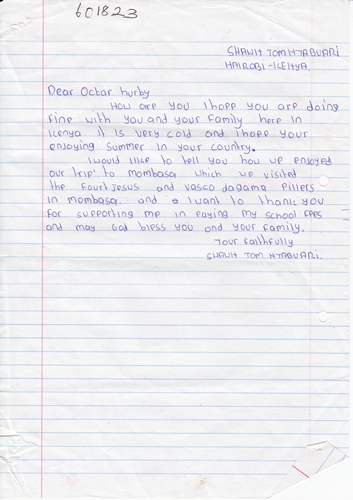 601823
SHAWH TOM HTABUARI
HAIROBI-KEHYA.
Dear Octar hurby
How are you I hope you are doing
fine with you and your family here in
Kenya it is very cold and I hope your
enjoying summer in your country.
I would like to tell you how we enjoyed
our trip to mombasa which we visited
the fourt Jesus and vasco dagama pillers
in mombasa. and I want to thank you
for supporting me in paying my school fees
and may God bless you and your family.
Your faithfully
SHAWH TOM HTABUARI.